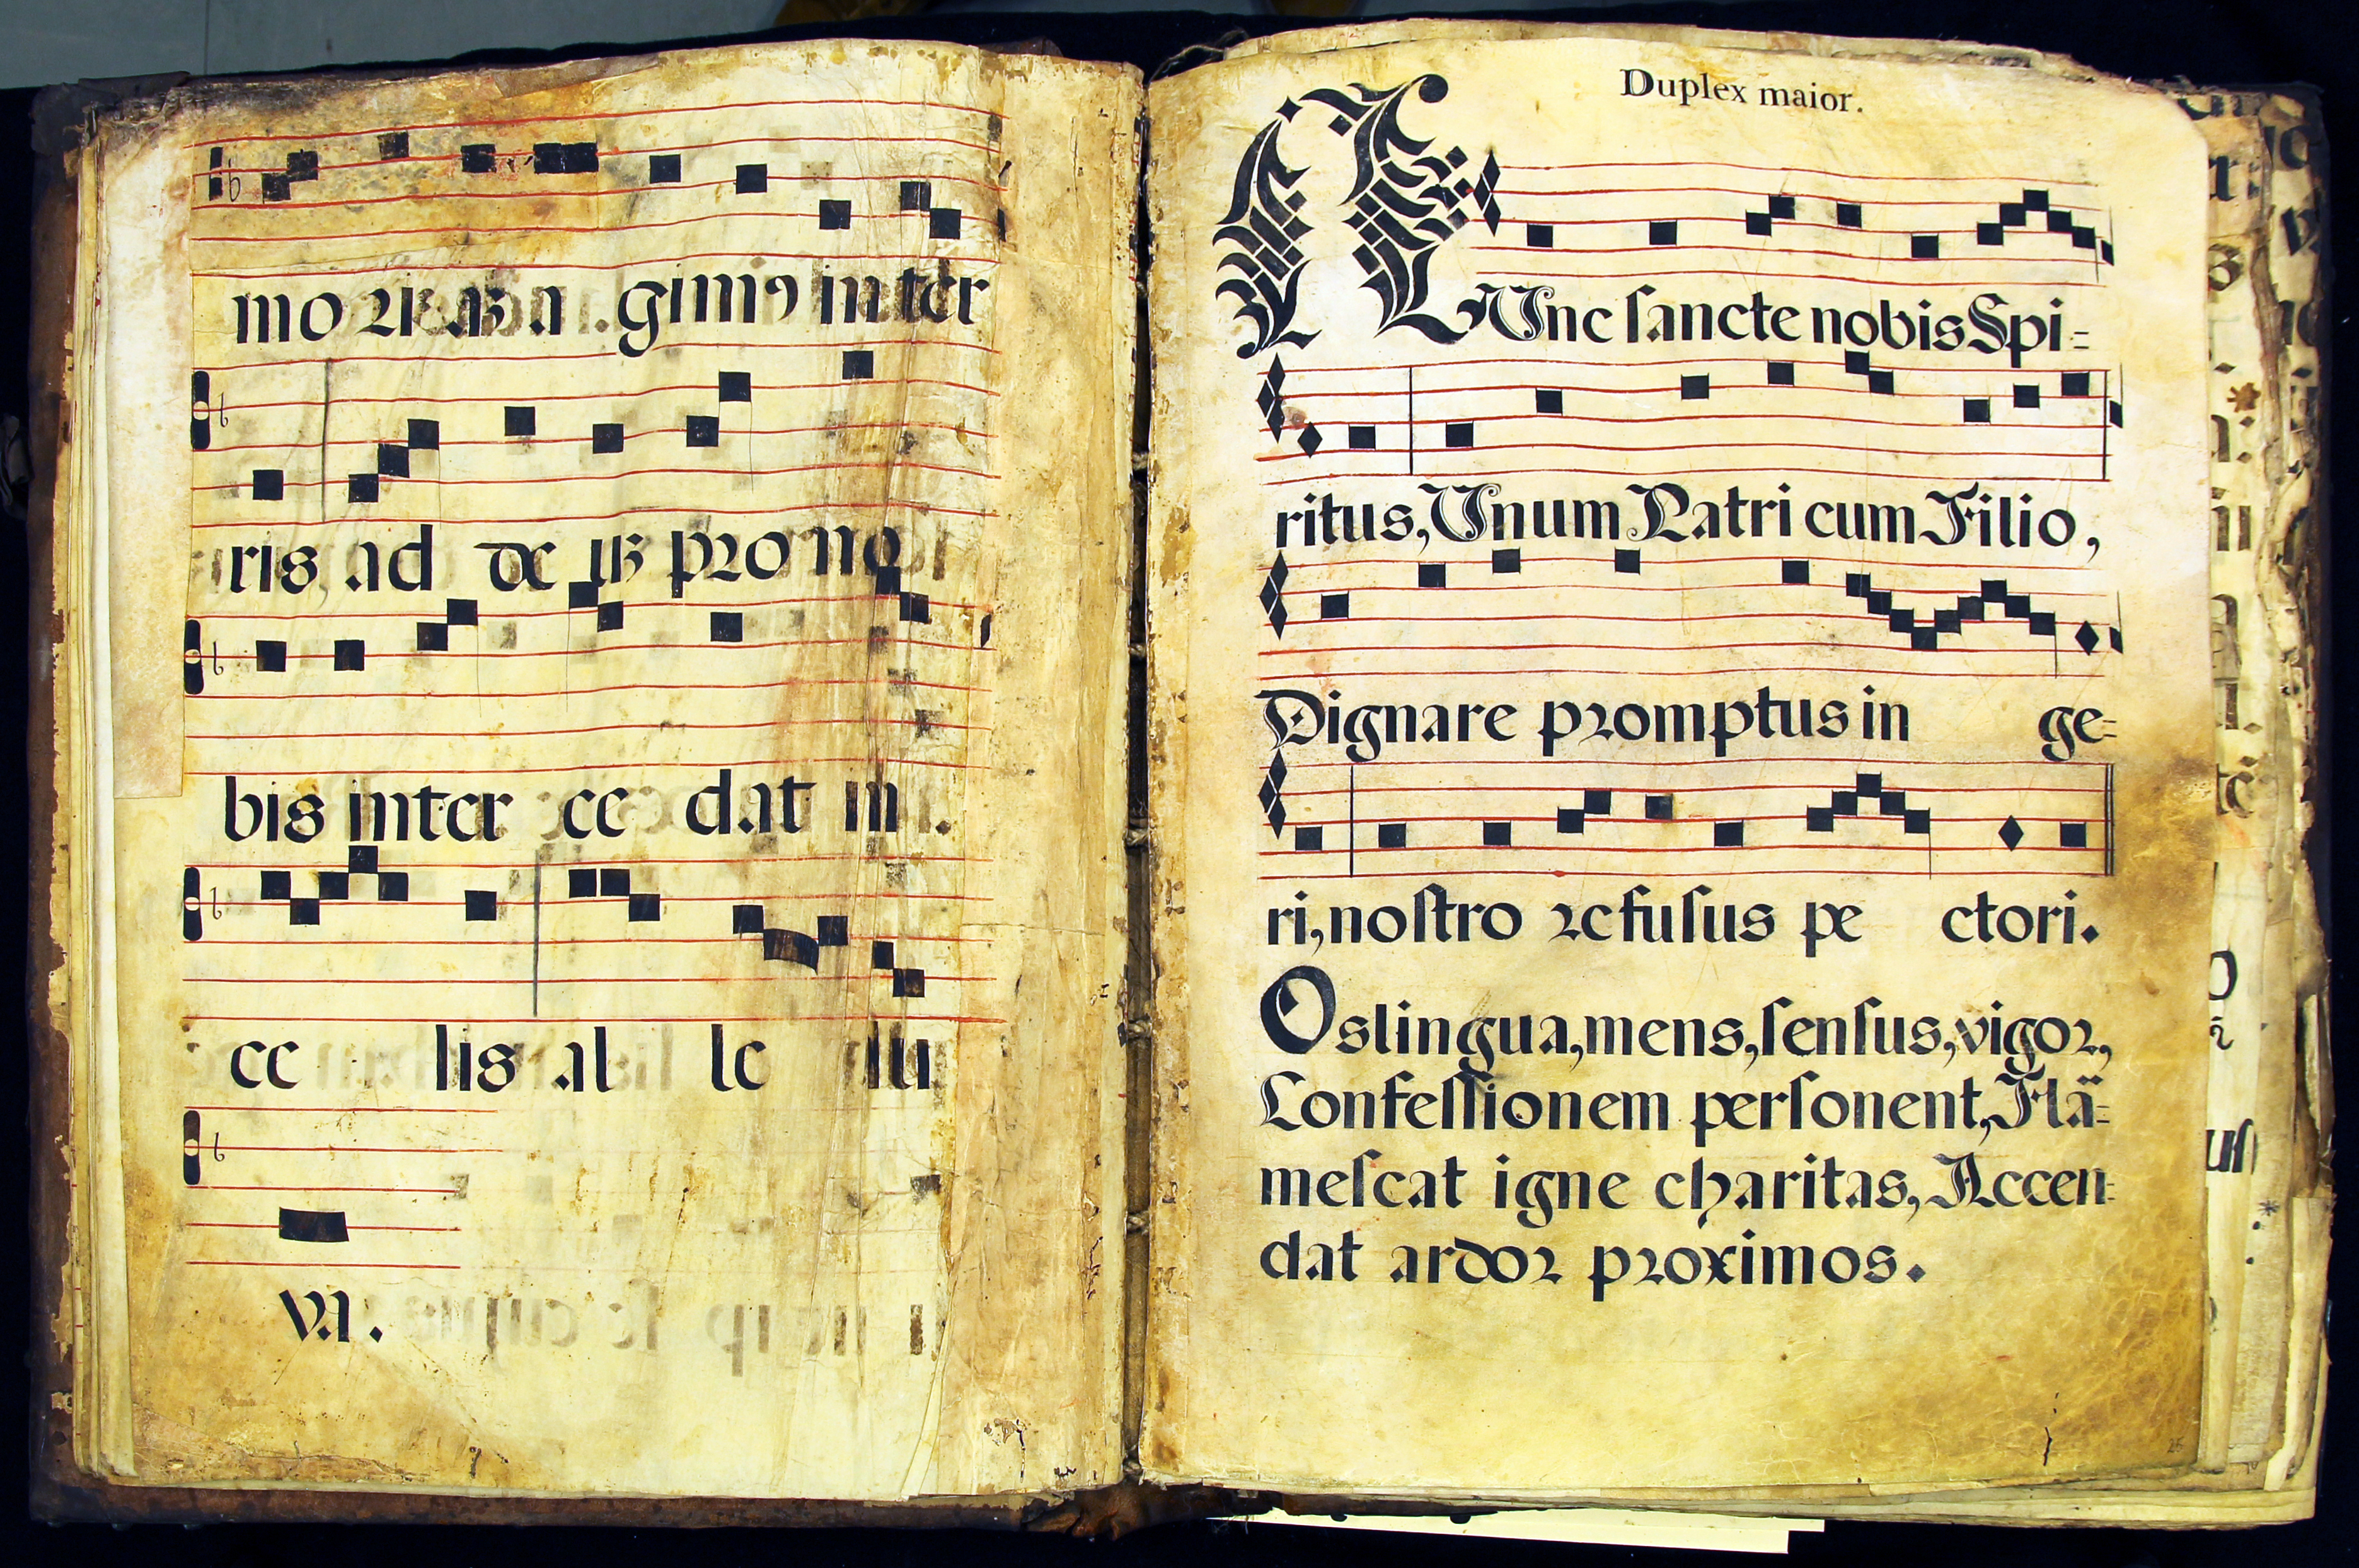 mo
a gimꝰ inter
ris ad de us pro no
bis inter ce dat in
ce lis al le lu
ya.
Duplex maior.
NUnc sancte nobis Spi=
ritus, Unum Patri cum Filio,
Dignare promptus in ge=
ri, nostro refusus pe ctori.
Os lingua, mens, sensus, vigor,
Confessionem personent, Flã=
mescat igne charitas, Accen=
dat ardor proximos.